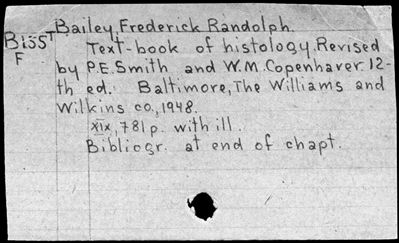 Bailey, Frederick Randolph.
BISST
F
Text-book of histology. Revised
by P.E. Smith and W.M. Copenhaver 12-
th ed. Baltimore, The Williams and
Wilkins co., 1948.
XIX, 781 p. with ill.
Bibliogr. at end of chapt.